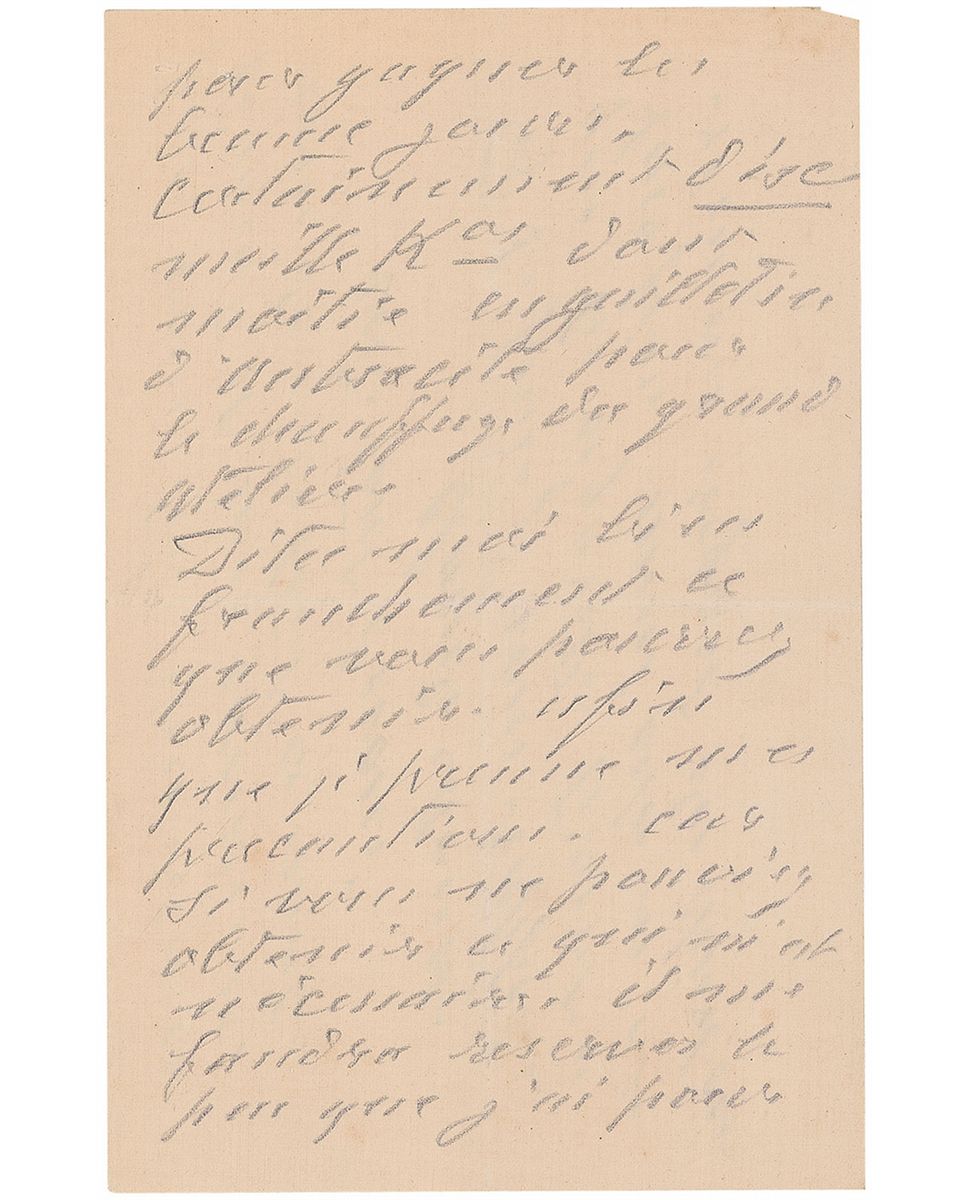 pour gagner les
beaux jours.
certainement dixe
mille Kos dont
moitié en gailletin
d'Antracite pour
le chauffage du grand
atelier.
Dites moi bien
franchement ce
que vous pouvez
obtenir. afin
que je prenne mes
precautions. car
si vous ne pouviez
obtenir ce qui m'est
nécessaire. il me
faudra reserver le
peu que j'ai pour